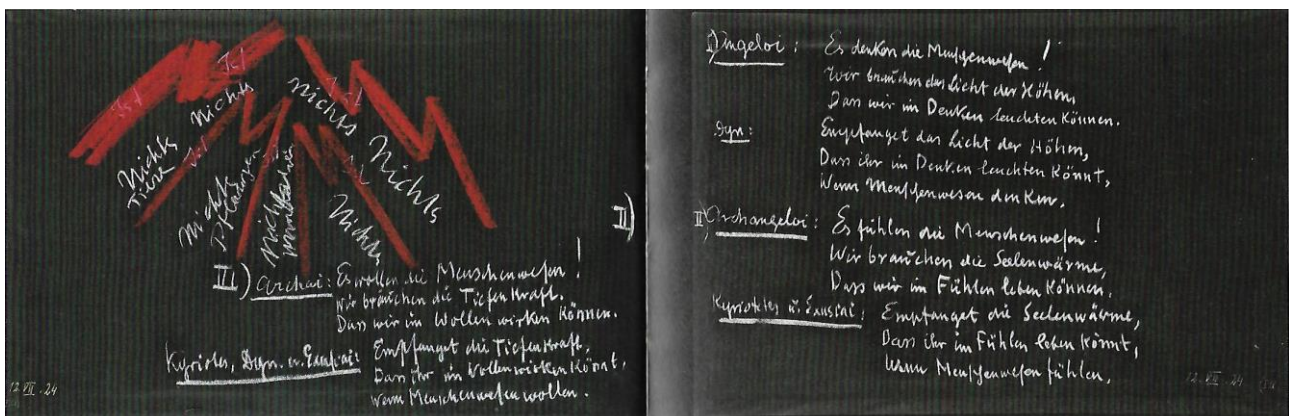 Ich
Ich
Ich
Ich
Nichts
Nichts
Nichts
Nichts
Tiere
Nichts
Pflanzen
Nichts
Mineralien
Nichts
II)
III) Archai: Es wollen die Menschenwesen!
Wir brauchen die Tiefenkraft,
Dass wir im Wollen wirken können.
Kyriotetes, Dyn. u. Exusiai: Empfanget die Tiefenkraft,
Dass ihr im Wollen wirken könnt,
Wenn Menschenwesen wollen.
12.VII.24
I) Angeloi: Es denken die Menschenwesen!
Wir brauchen das Licht der Höhen,
Dass wir im Denken leuchten können.
Dyn: Empfanget das Licht der Höhen,
Dass ihr im Denken leuchten könnt,
Wenn Menschenwesen denken.
II) Archangeloi: Es fühlen die Menschenwesen!
Wir brauchen die Seelenwärme,
Dass wir im Fühlen leben können.
Kyriotetes u. Exusiai: Empfanget die Seelenwärme,
Dass ihr im Fühlen leben könnt,
Wenn Menschenwesen fühlen.
12.VII.24